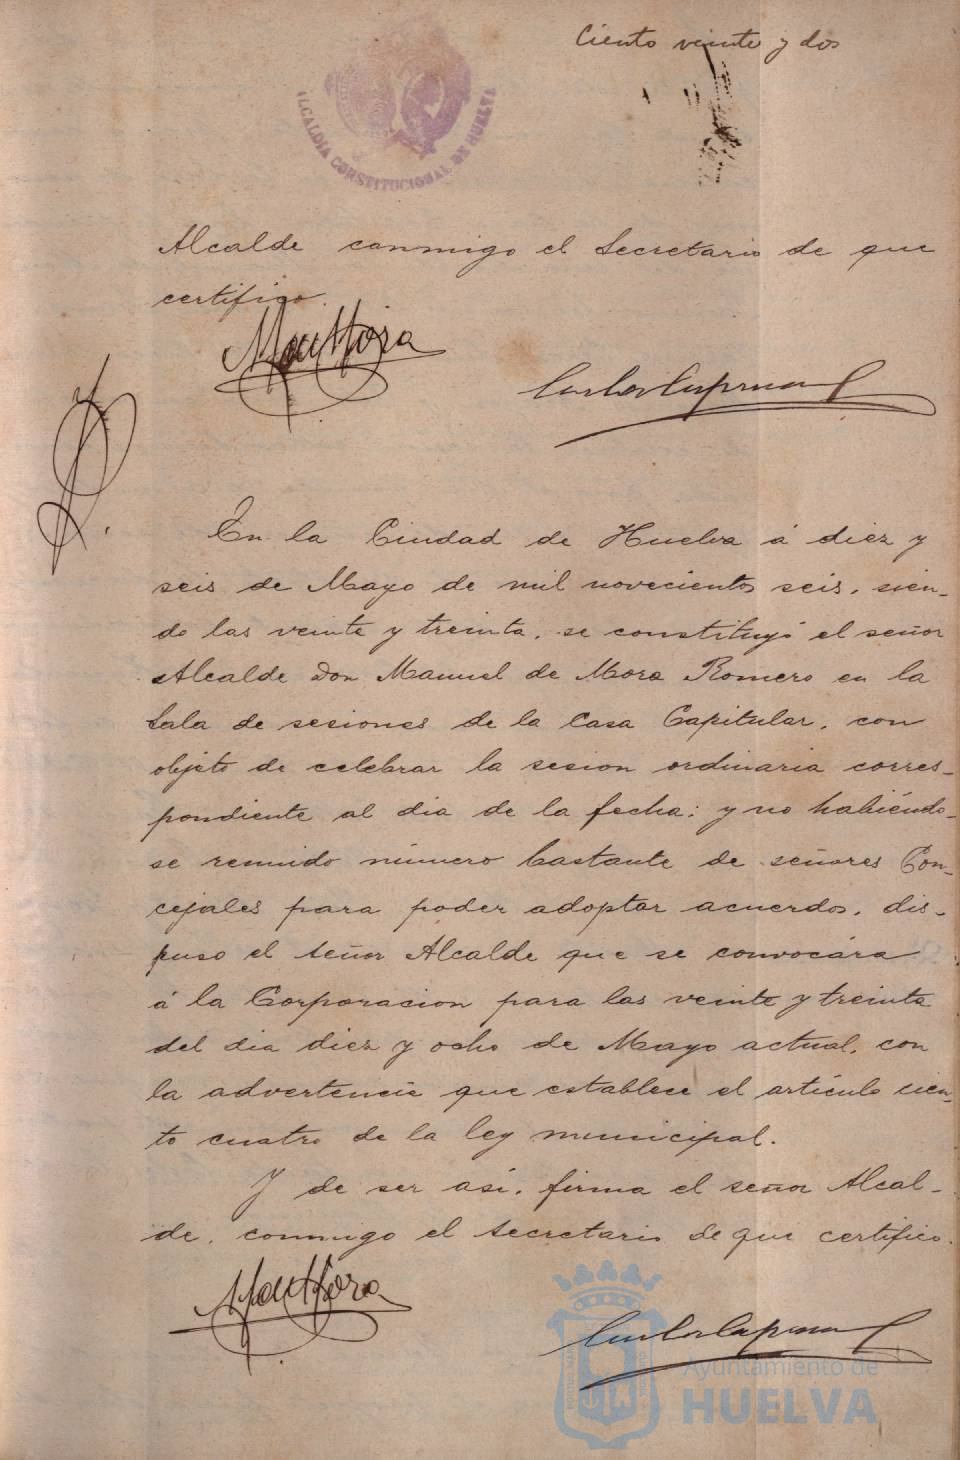 Ciento veinte y dos
ALCALDIA CONSTITUCIONAL DE HUELVA
Alcalde conmigo el Secretario de que
certifico.
En la Ciudad de Huelva á diez y
seis de Mayo de mil novecientos seis, sien-
do las veinte y treinta, se constituyó el señor
Alcalde Don Manuel de Mora Romero en la
Sala de sesiones de la Casa Capitular, con
objeto de celebrar la sesion ordinaria corres-
pondiente al dia de la fecha; y no habiéndo-
se reunido número bastante de señores Con-
cejales para poder adoptar acuerdos, dis-
puso el señor Alcalde que se convocára
á la Corporacion para las veinte y treinta
del dia diez y ocho de Mayo actual, con
la advertencia que establece el artículo cien-
to cuatro de la ley municipal.
Y de ser asi, firma el señor Alcal-
de, conmigo el Secretario de que certifico.
Ayuntamiento de
HUELVA